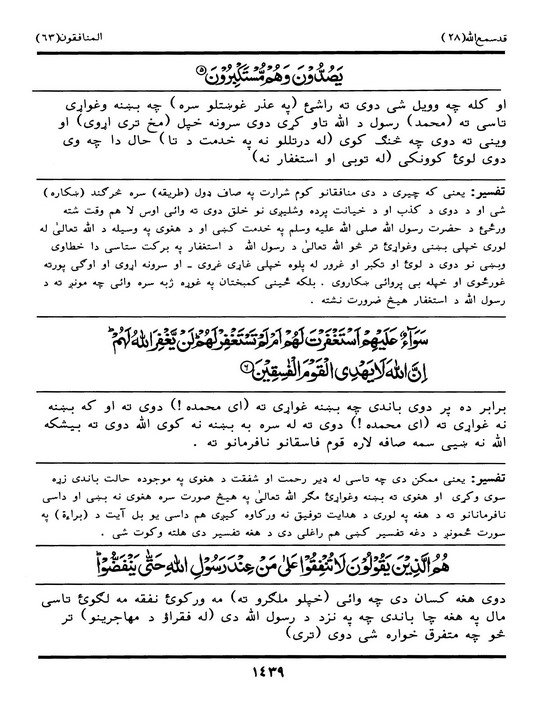 قدسمع الله (٢٨)
المنافقون (٦٣)
يَصُدُّونَ وَهُمْ مُّسْتَكْبِرُونَ ۝٥
او کله چه وویل شی دوی ته راشئ (په عذر غوښتلو سره) چه بښنه وغواړي
تاسی ته (محمد) رسول د الله تاو کړی دوی سرونه خپل (مخ تری اړوی) او
وینی ته دوی چه څنګ کوی (له درتللو نه په خدمت د تا) حال دا چه وی
دوی لوئ کوونکی (له توبی او استغفار نه)
تفسیر: یعنی که چیری د دی منافقانو کوم شرارت په صاف ډول (طریقه) سره څرګند (ښکاره)
شی او د دوی د کذب او د خیانت پرده وشلیږی نو خلق دوی ته وائی اوس لا هم وقت شته
ورځئ د حضرت رسول الله صلی الله علیه وسلم په خدمت کښی او د هغوی په وسیله د الله تعالیٰ له
لوری خپلی بښنی وغواړئ تر څو الله تعالیٰ د رسول الله د استغفار په برکت ستاسی دا خطاوی
وبښی نو دوی د لوئ او تکبر او غرور له پلوه خپلی غاړی غړوی ــ او سرونه اړوی او اوګی پورته
غورځوی او خپله بی پروائی ښکاروی . بلکه ځینی کمبختان په غوړه ژبه سره وائی چه مونږ ته د
رسول الله د استغفار هیڅ ضرورت نشته .
سَوَآءٌ عَلَيْهِمْ اَسْتَغْفَرْتَ لَهُمْ اَمْ لَمْ تَسْتَغْفِرْ لَهُمْ لَنْ يَّغْفِرَ اللّٰهُ لَهُمْ
اِنَّ اللّٰهَ لَا يَهْدِى الْقَوْمَ الْفٰسِقِيْنَ ۝٦
برابر ده پر دوی باندی چه بښنه غواړی ته (ای محمده !) دوی ته او که بښنه
نه غواړی ته (ای محمده !) دوی ته له سره به بښنه نه کوی الله دوی ته بیشکه
الله نه ښیی سمه صافه لاره قوم فاسقانو نافرمانو ته .
تفسیر: یعنی ممکن دی چه تاسی له ډیر رحمت او شفقت د هغوی په موجوده حالت باندی زړه
سوی وکړی او هغوی ته بښنه وغواړئ مګر الله تعالیٰ په هیڅ صورت سره هغوی نه بښی او داسی
نافرمانانو ته د هغه په لوری د هدایت توفیق نه ورکاوه کیږی هم داسی یو بل آیت د (براءة) په
سورت ځمونږ د دغه تفسیر کښی هم راغلی دی د هغه تفسیر دی هلته وکوت شی .
هُمُ الَّذِيْنَ يَقُوْلُوْنَ لَا تُنْفِقُوْا عَلٰى مَنْ عِنْدَ رَسُوْلِ اللّٰهِ حَتّٰى يَنْفَضُّوْا
دوی هغه کسان دی چه وائی (خپلو ملګرو ته) مه ورکوئ نفقه مه لګوئ تاسی
مال په هغه چا باندی چه په نزد د رسول الله دی (له فقراؤ د مهاجرینو) تر
څو چه متفرق خواره شی دوی (تری)
١٤٣٩